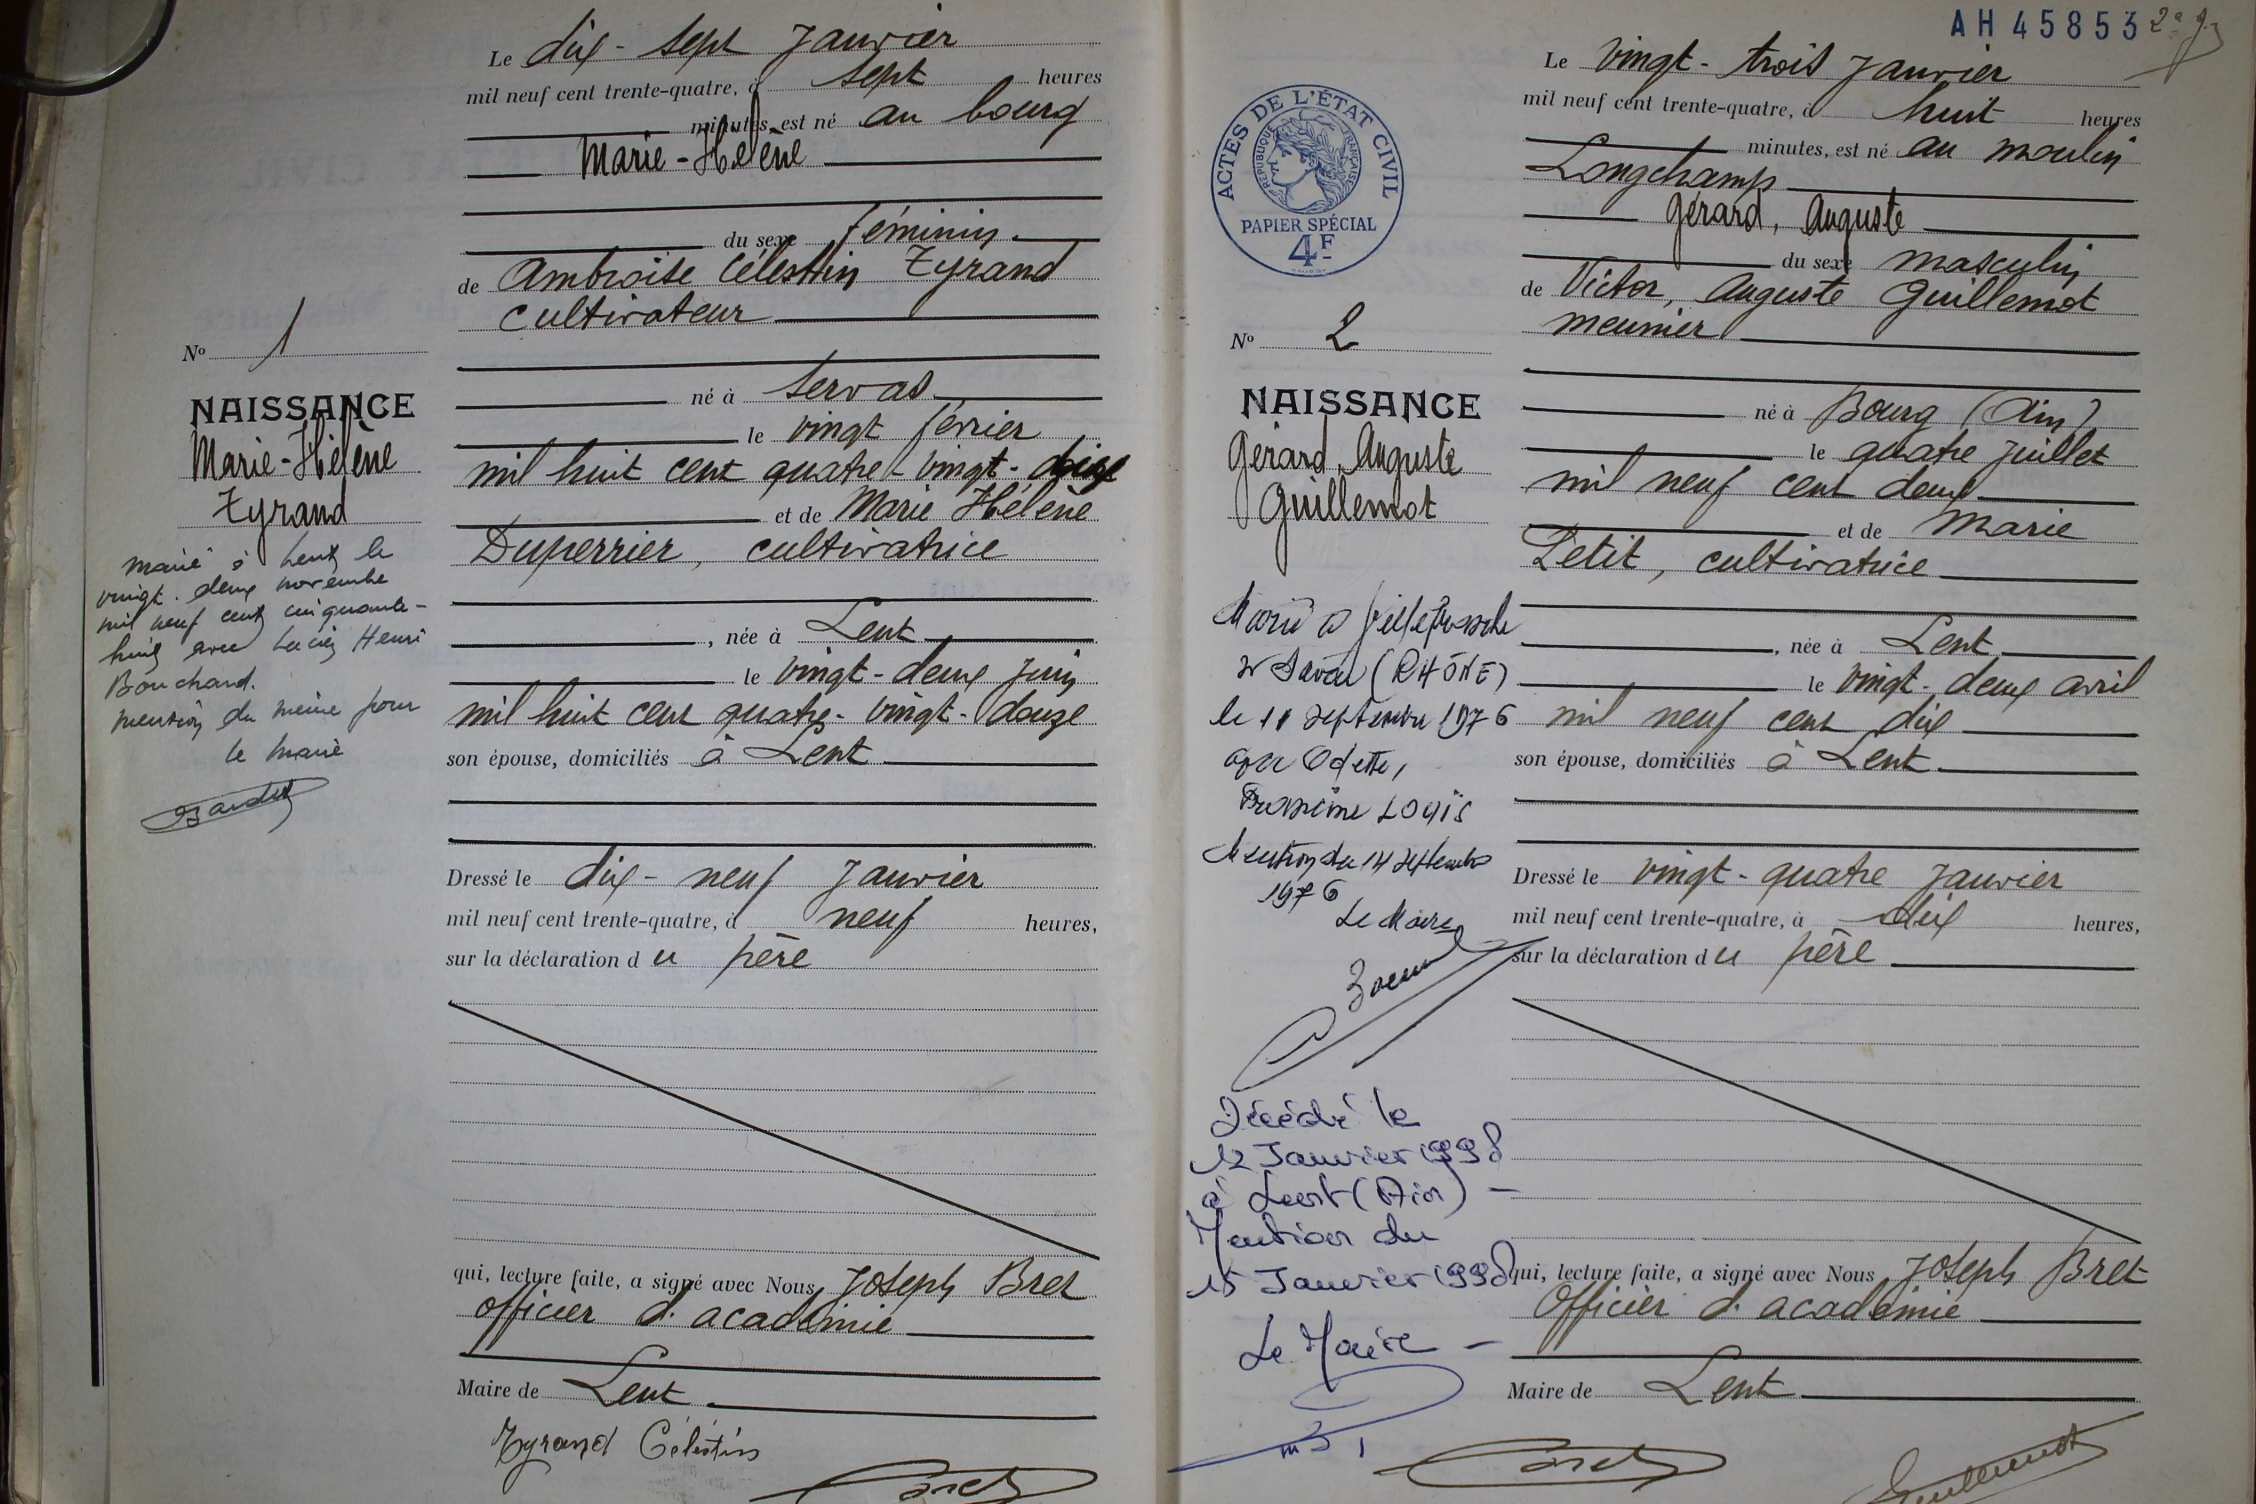 Le dix-sept Janvier
mil neuf cent trente-quatre, à sept heures
minutes, est né au bourg
Marie-Hélène
du sexe féminin
de Ambroise Célestin Tyrand
cultivateur
né à Servas
le vingt février
mil huit cent quatre-vingt-
et de Marie Hélène
Duperrier, cultivatrice
, née à Lent
le vingt-deux juin
mil huit cent quatre-vingt-douze
son épouse, domiciliés à Lent
Dressé le dix-neuf Janvier
mil neuf cent trente-quatre, à neuf heures,
sur la déclaration du père
qui, lecture faite, a signé avec Nous, Joseph Bret
officier d'académie
Maire de Lent
Tyrand Célestin
Nº 1
NAISSANCE
Marie-Hélène
Tyrand
Marié à Lent le
vingt-deux novembre
mil neuf cent cinquante-
huit avec Lucien Henri
Bouchard.
mention du même jour
le maire
AH 45853
ACTES DE L'ÉTAT CIVIL
RÉPUBLIQUE FRANÇAISE
PAPIER SPÉCIAL
4F
Nº 2
NAISSANCE
Gérard, Auguste
Guillemot
Marié à Villefranche
sr Saône (RHÔNE)
le 11 septembre 1976
avec Odette,
LOUIS
Mention du 14 septembre
1976
Le Maire
Décédé le
12 Janvier 1998
à Lent (Ain) -
Mention du
15 Janvier 1998
Le Maire -
Le vingt-trois Janvier
mil neuf cent trente-quatre, à huit heures
minutes, est né au moulin
Longchamp
Gérard, Auguste
du sexe masculin
de Victor, Auguste Guillemot
meunier
né à Bourg (Ain)
le quatre juillet
mil neuf cent deux
et de Marie
Petit, cultivatrice
, née à Lent
le vingt-deux avril
mil neuf cent dix
son épouse, domiciliés à Lent
Dressé le vingt-quatre Janvier
mil neuf cent trente-quatre, à dix heures,
sur la déclaration du père
qui, lecture faite, a signé avec Nous Joseph Bret
Officier d'académie
Maire de Lent
Guillemot